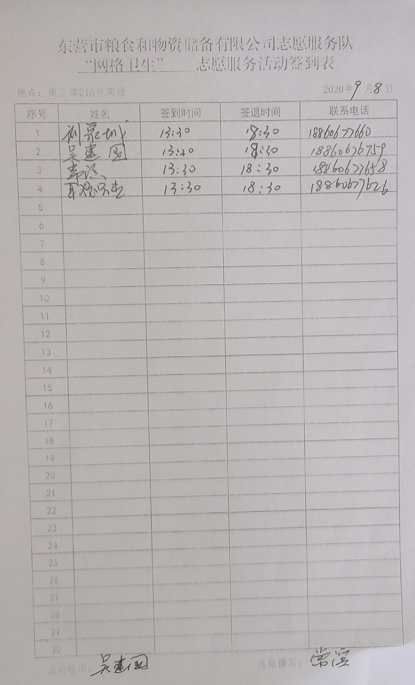 东营市粮食和物资储备有限公司志愿服务队
“网格卫生” 志愿服务活动签到表
地点：南二路210 2020年9月8日
序号 姓名 签到时间 签退时间 联系电话
1 13:30 18:30 18860677660
2 吴建国 13:30 18:30 18860676759
3 13:30 18:30 18860677658
4 13:30 18:30 18860677626
5
6
7
8
9
10
11
12
13
14
15
16
17
18
19
20
21
22
23
24
25
26
27
28
29
30
吴建国